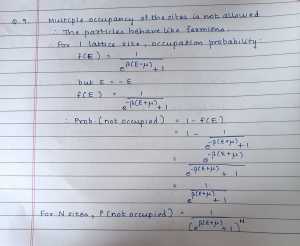 Q.9. Multiple occupancy of the sites is not allowed
∴ The particles behave like fermions.
For 1 lattice site, occupation probability:
f(E) = 1 / (e^{β(E-μ)} + 1)
but E = -ε
f(E) = 1 / (e^{-β(ε+μ)} + 1)
∴ Prob. (not occupied) = 1 - f(E)
= 1 - 1 / (e^{-β(ε+μ)} + 1)
= e^{-β(ε+μ)} / (e^{-β(ε+μ)} + 1)
= 1 / (e^{β(ε+μ)} + 1)
For N sites, P (not occupied) = 1 / (e^{β(ε+μ)} + 1)^N